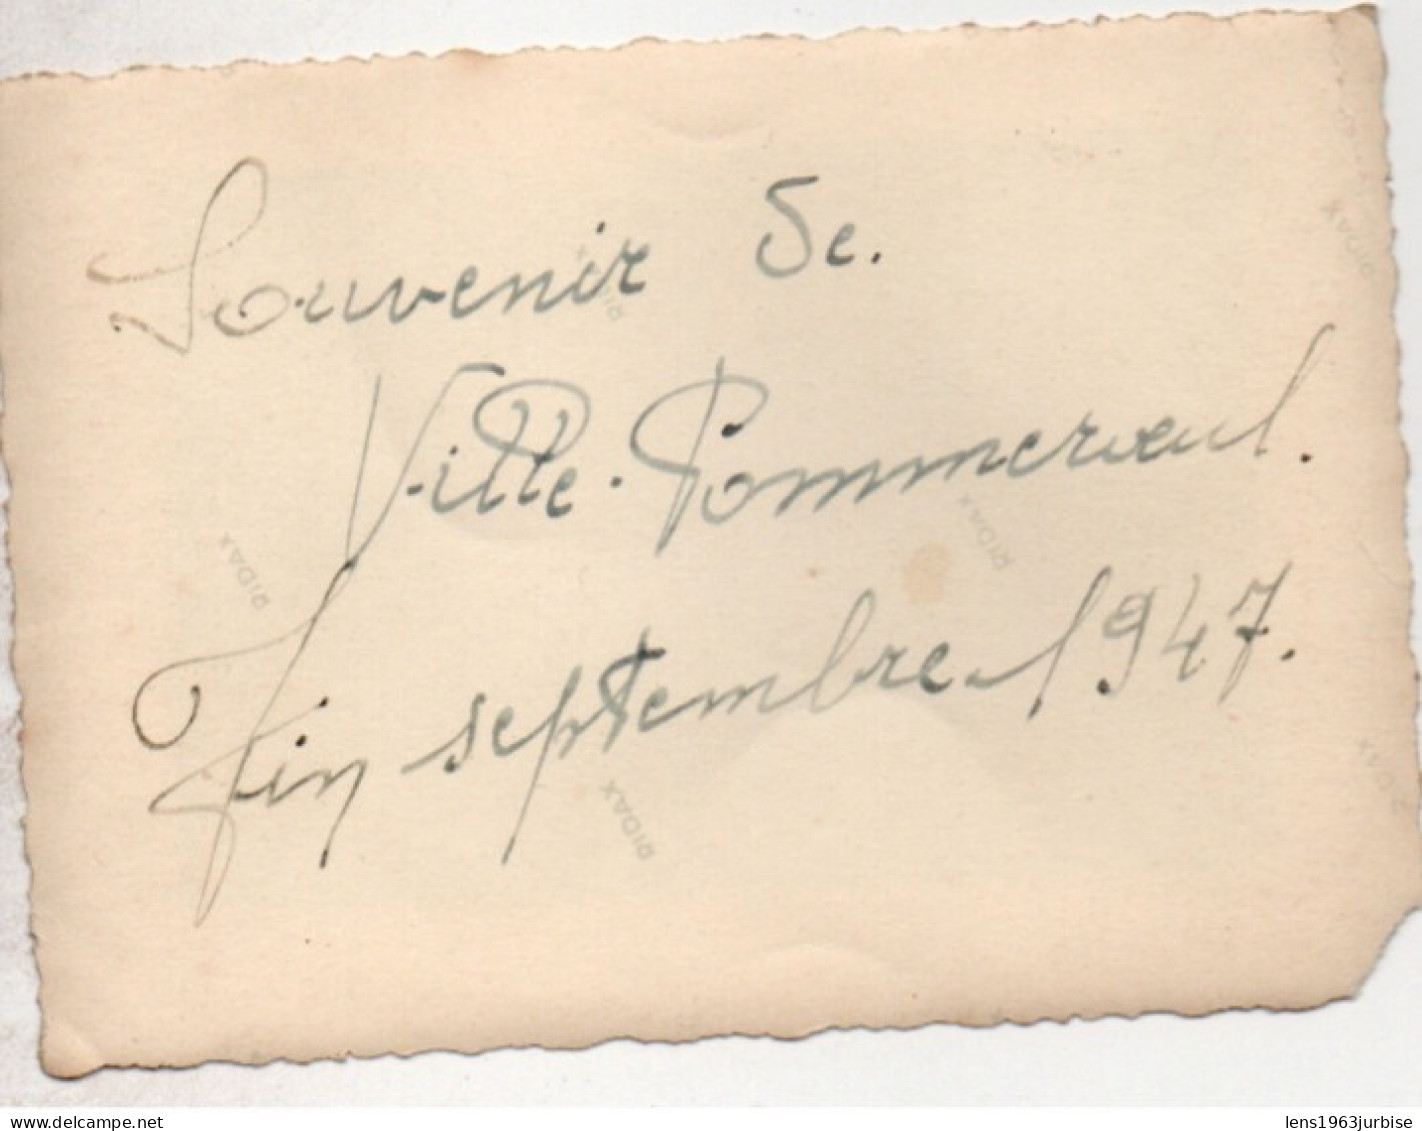 Souvenir de.
Ville. Pommerœul.
Fin septembre. 1947.
RIDAX
RIDAX
RIDAX
RIDAX
delcampe.net
lens1963jurbise